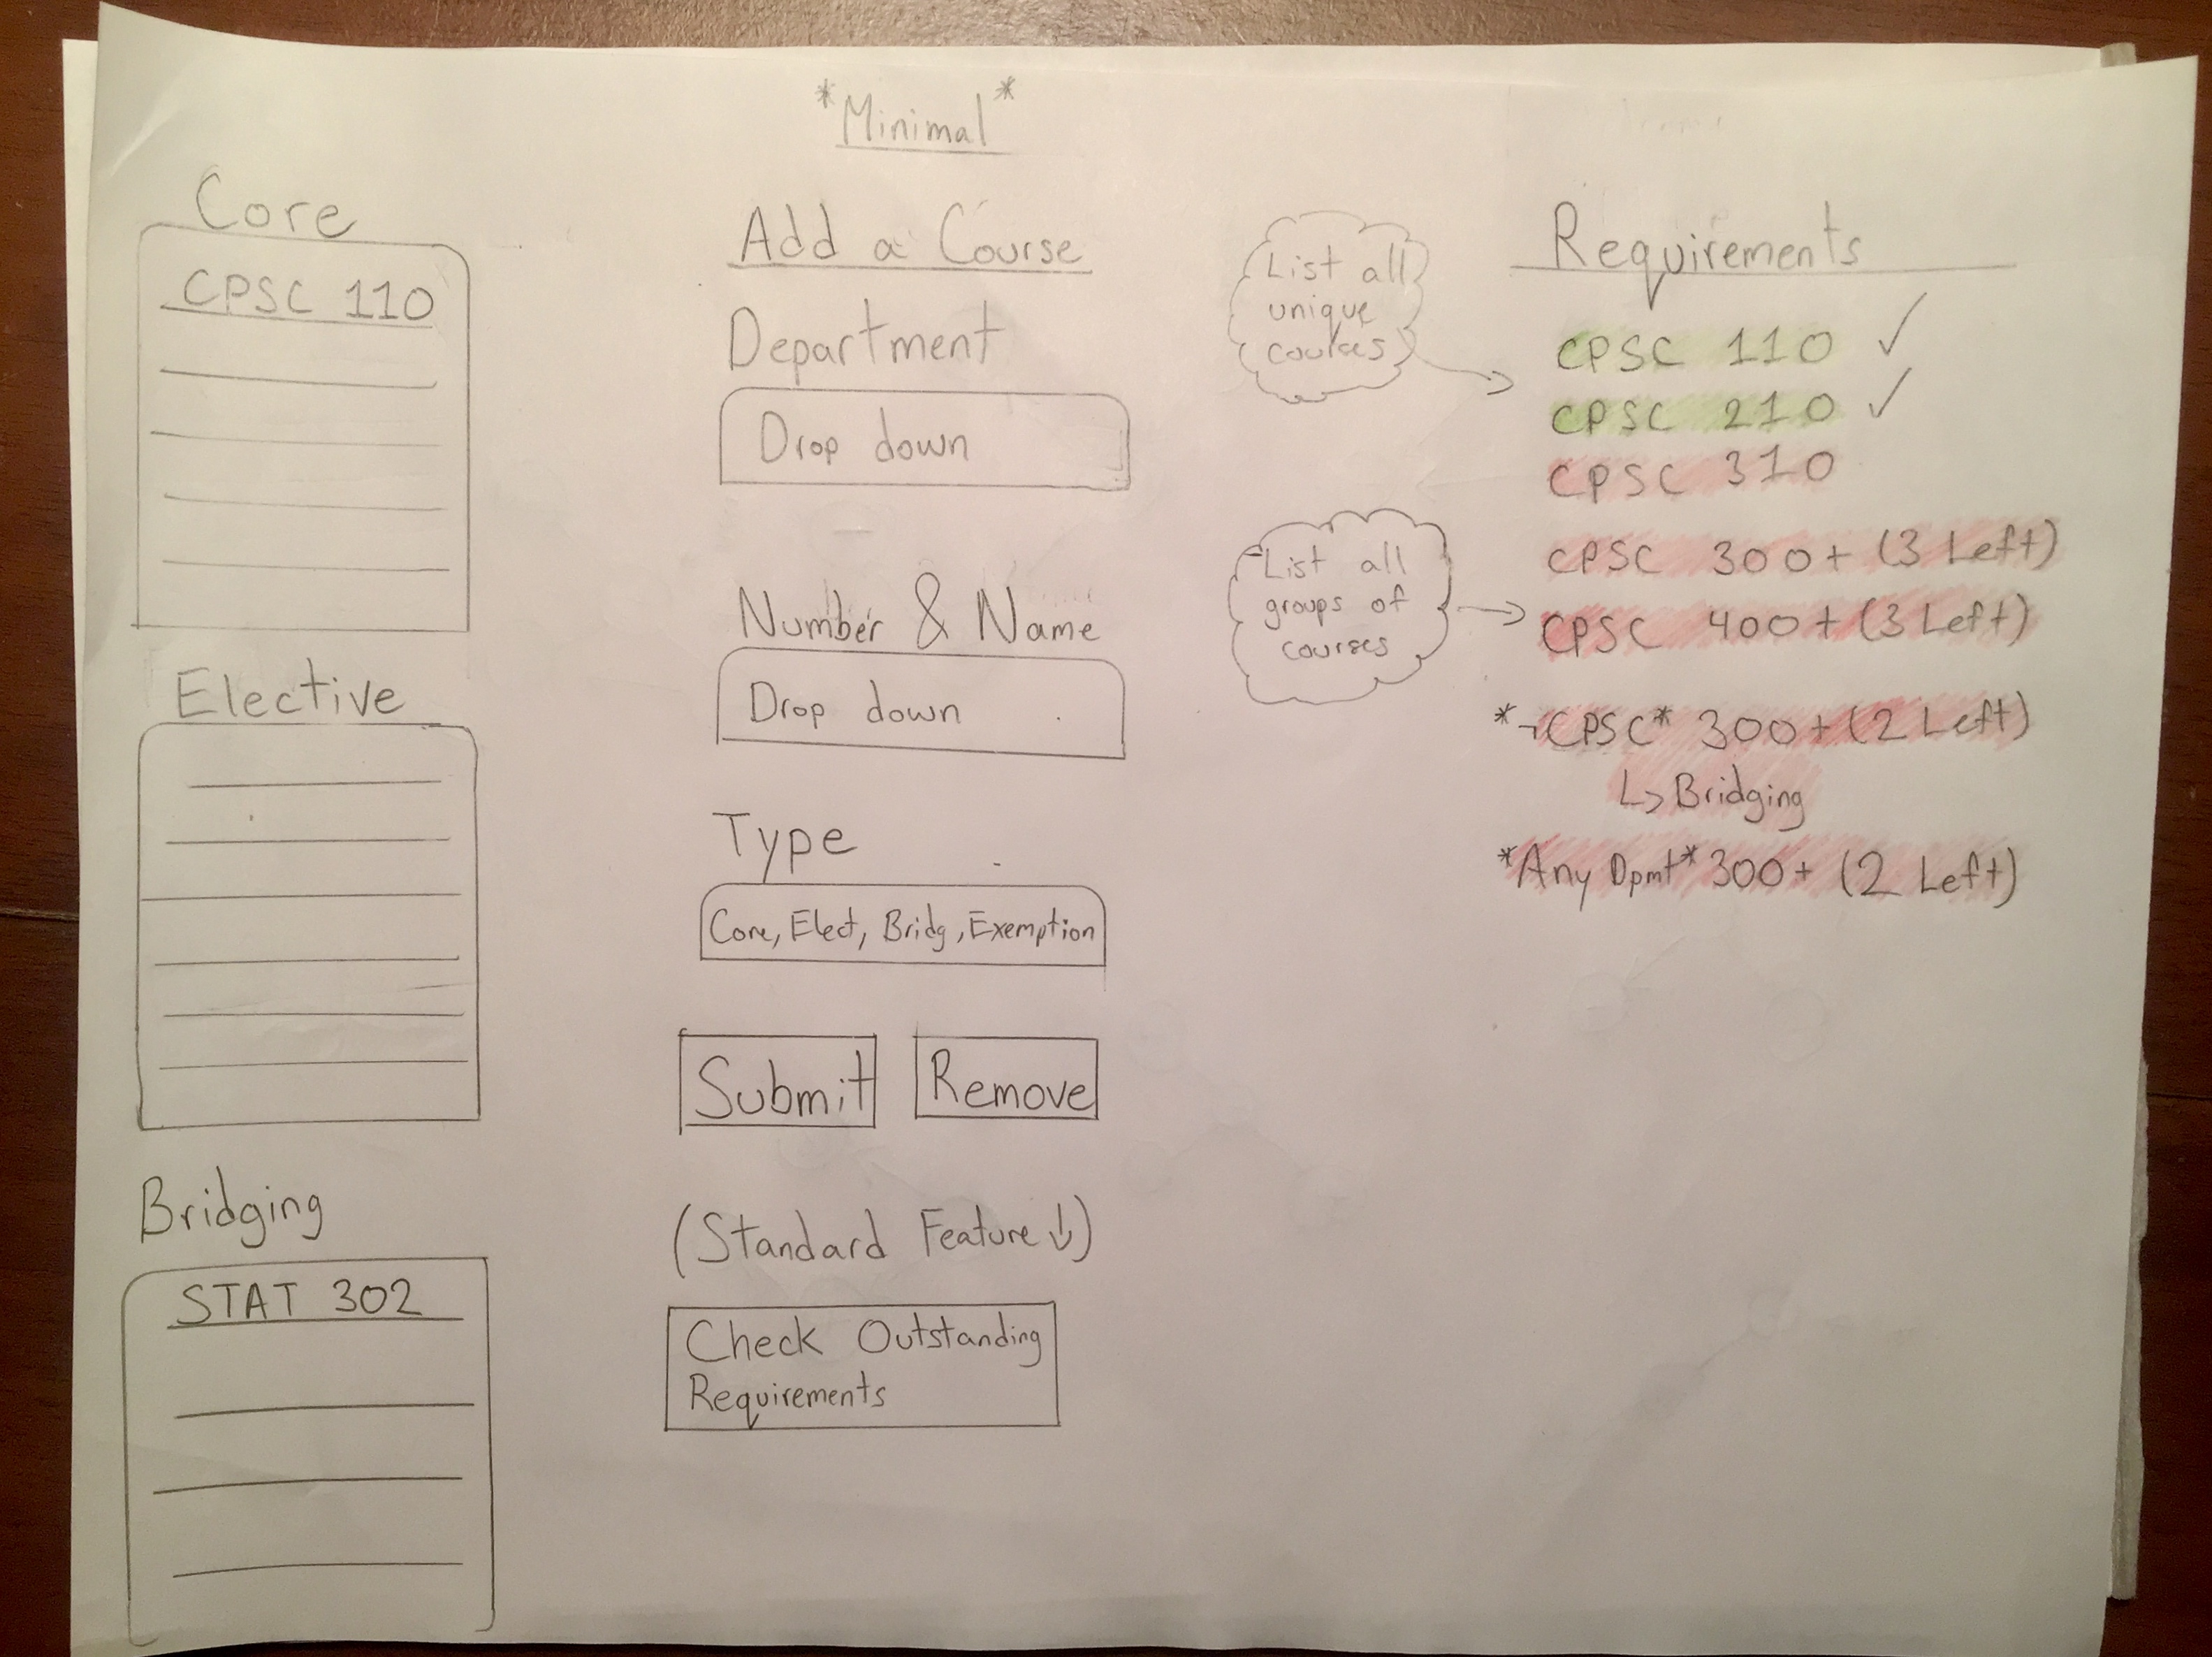 *Minimal*
Core
CPSC 110
Elective
Bridging
STAT 302
Add a Course
Department
Drop down
Number & Name
Drop down
Type
Core, Elect, Bridg, Exemption
Submit
Remove
(Standard Feature ↓)
Check Outstanding
Requirements
List all
unique
courses
List all
groups of
courses
Requirements
CPSC 110 ✓
CPSC 210 ✓
CPSC 310
CPSC 300+ (3 Left)
CPSC 400+ (3 Left)
*¬CPSC* 300+ (2 Left)
↳ Bridging
*Any Dpmt* 300+ (2 Left)